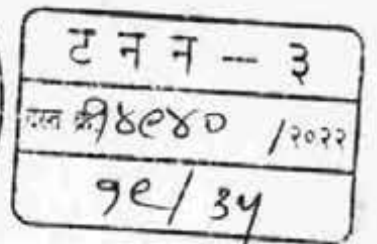 ट न न -- ३
दस्त क्र. १४९४० /२०२२
१९/३५